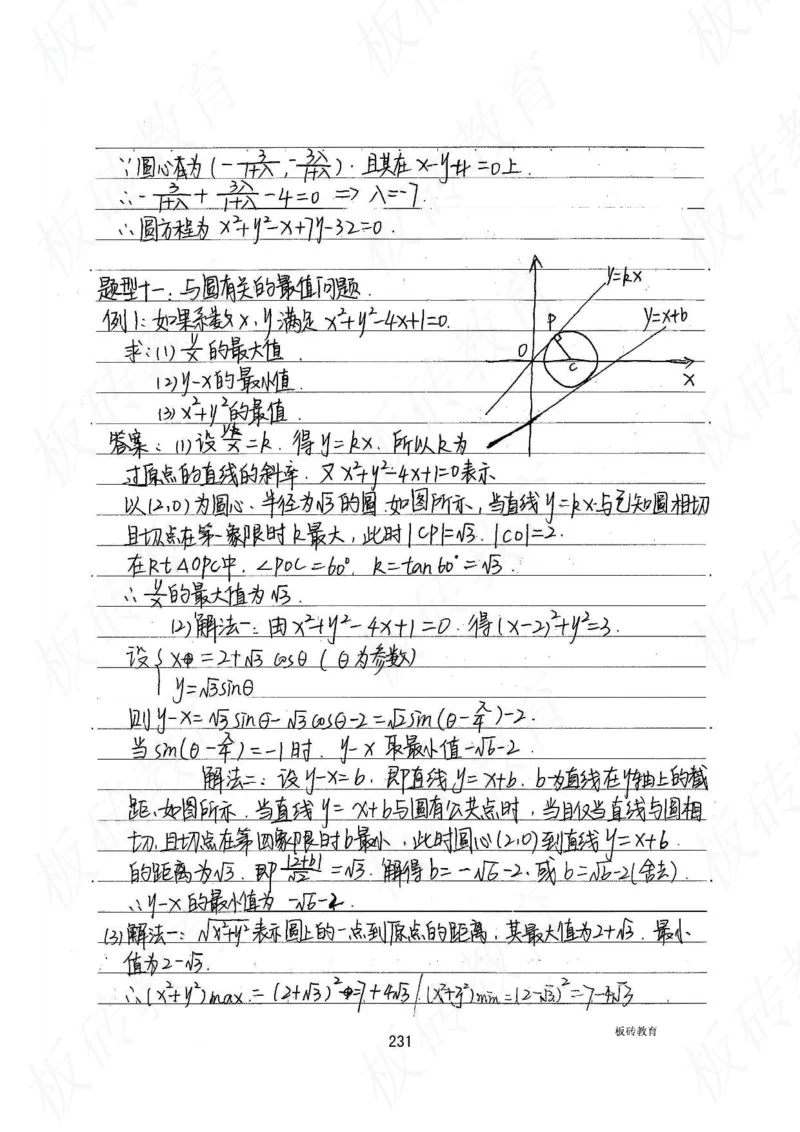 ∵圆心在为(-3/(1+λ), -3λ/(1+λ)). 且其在 x-y-4=0上.
∴-3/(1+λ)+3λ/(1+λ)-4=0 => λ=-7.
∴圆方程为 x²+y²-x+7y-32=0.
题型十一: 与圆有关的最值问题.
例1: 如果系数x, y 满足 x²+y²-4x+1=0.
求:(1) y/x 的最大值
(2) y-x的最小值
(3) x²+y²的最值.
y=kx
y=x+b
P
O
C
x
答案: (1)设 y/x=k. 得 y=kx. 所以k为
过原点的直线的斜率. 又x²+y²-4x+1=0表示
以(2,0)为圆心、半径为√3的圆. 如图所示, 当直线y=kx与已知圆相切
且切点在第一象限时k最大, 此时|CP|=√3. |CO|=2.
在Rt△OPC中. ∠POC=60°. k=tan60°=√3.
∴y/x的最大值为√3.
(2)解法一: 由x²+y²-4x+1=0. 得(x-2)²+y²=3.
设{x=2+√3cosθ (θ为参数)
y=√3sinθ
则y-x=√3sinθ-√3cosθ-2=√2sin(θ-π/4)-2.
当sin(θ-π/4)=-1时. y-x取最小值-√6-2.
解法二: 设y-x=b. 即直线y=x+b. b为直线在y轴上的截
距. 如图所示. 当直线y=x+b与圆有公共点时, 当且仅当直线与圆相
切. 且切点在第四象限时b最小, 此时圆心(2,0)到直线y=x+b
的距离为√3. 即|2+b|/√2=√3. 解得b=-√6-2. 或b=√6-2(舍去).
∴y-x的最小值为-√6-2.
(3)解法一: √(x²+y²)表示圆上的一点到原点的距离, 其最大值为2+√3. 最小
值为2-√3.
∴(x²+y²)max=(2+√3)²=7+4√3 / (x²+y²)min=(2-√3)²=7-4√3
231
板砖教育